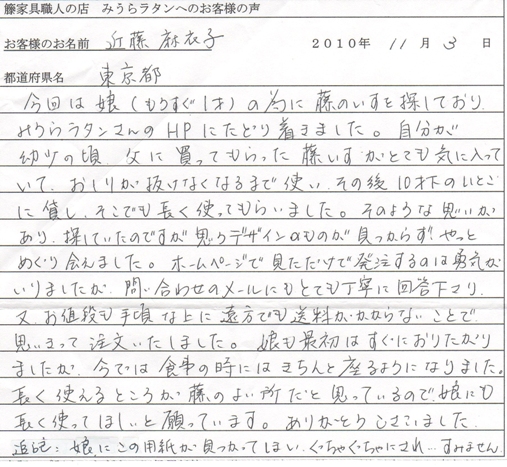 籐家具職人の店　みうらラタンへのお客様の声
お客様のお名前　近藤 麻衣子　2010年 11 月 3 日
都道府県名　東京都
今回は娘（もうすぐ1才）の為に藤のいすを探しており、
みうらラタンさんのHPにたどり着きました。自分が
幼少の頃、父に買ってもらった藤いすがとても気に入って
いて、おしりが抜けなくなるまで使い、その後10才下のいとこ
に貸し、そこでも長く使ってもらいました。そのような思いが
あり、探していたのですが思うデザインのものが見つからず、やっと
めぐり会えました。ホームページで見ただけで発注するのは勇気が
いりましたが、問い合わせのメールにもとても丁寧に回答下さり、
又、お値段も手頃な上に遠方でも送料がかからないことで
思いきって注文いたしました。娘も最初はすぐにおりたがり
ましたが、今では食事の時にはきちんと座るようになりました。
長く使えるところが藤のよい所だと思っているので、娘にも
長く使ってほしいと願っています。ありがとうございました。
追記：娘にこの用紙が見つかってしまい、ぐっちゃぐっちゃにされ…すみません。